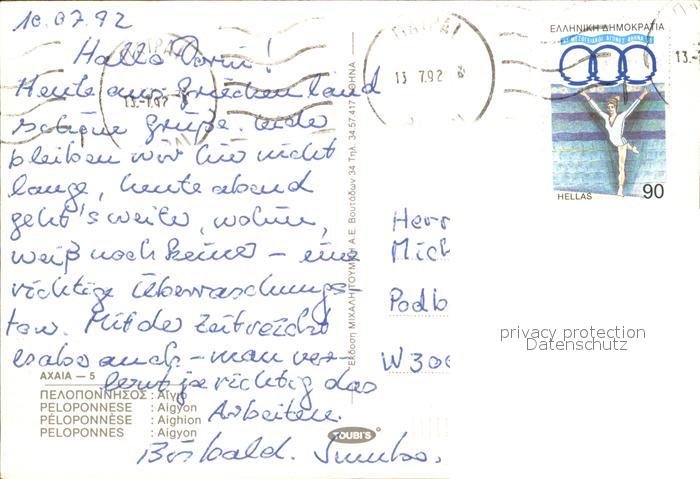 10.07.92
Hallo !
Heute aus Griechenland
schöne Grüße. Leider
bleiben wir hie nicht
lange, heute abend
geht's weiter, wohin,
weiß noch keiner – eine
richtige Überraschungs-
tour. Mit der Zeit reicht
es aber auch – man ver-
lernt ja richtig das
Arbeiten.
Bis bald.
ΑΧΑΪΑ — 5
ΠΕΛΟΠΟΝΝΗΣΟΣ : Αίγιο
PELOPONNESE : Aigyon
PÉLOPONNÈSE : Aighion
PELOPONNES : Aigyon
TOUBI'S
Έκδοση ΜΙΧΑΛΗ ΤΟΥΜΠΗ Α.Ε. Βουτάδων 34 Τηλ. 34.57.417 ΑΘΗΝΑ
ΠΑΤΡΑΙ
13-7.92
13 7.92
13-
ΕΛΛΗΝΙΚΗ ΔΗΜΟΚΡΑΤΙΑ
HELLAS
90
Herr
Mich
Podb
W 300
privacy protection
Datenschutz